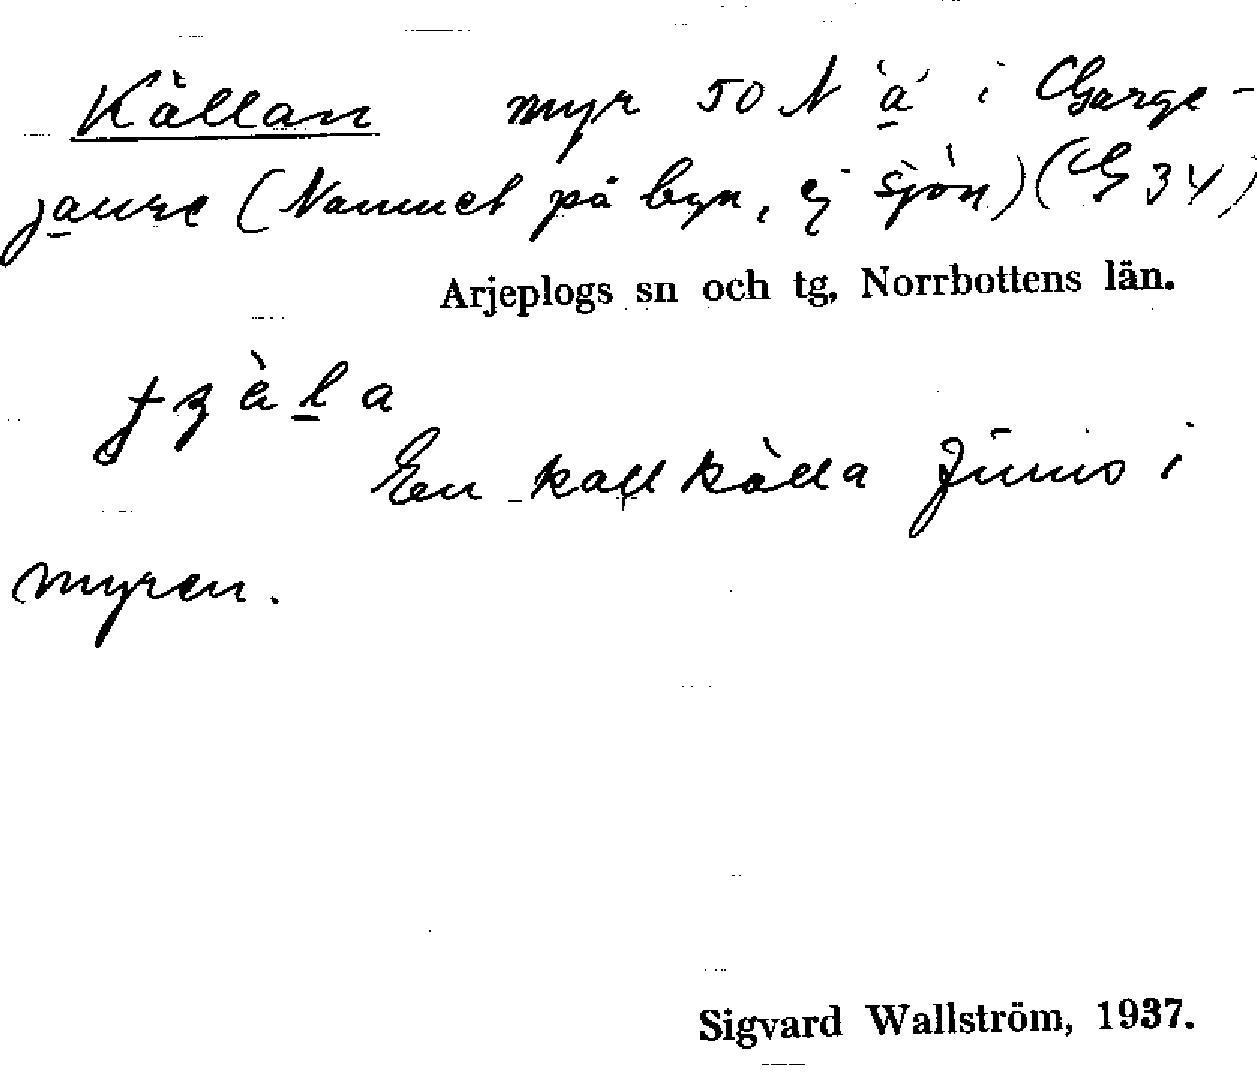 Källan myr 50 N ä i Garge-
jaure (Namnet på byn, ej sjön) (G 34)
Arjeplogs sn och tg, Norrbottens län.
En kallkälla finns i
myren.
Sigvard Wallström, 1937.